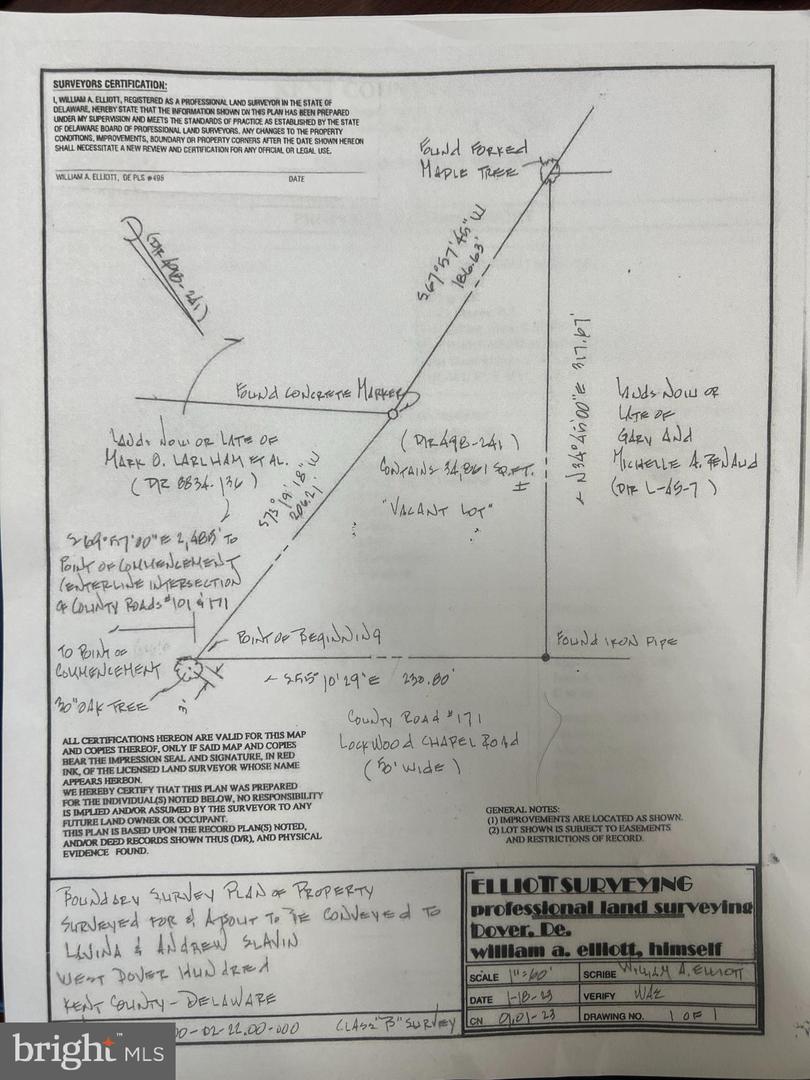 SURVEYORS CERTIFICATION:
I, WILLIAM A. ELLIOTT, REGISTERED AS A PROFESSIONAL LAND SURVEYOR IN THE STATE OF
DELAWARE, HEREBY STATE THAT THE INFORMATION SHOWN ON THIS PLAN HAS BEEN PREPARED
UNDER MY SUPERVISION AND MEETS THE STANDARDS OF PRACTICE AS ESTABLISHED BY THE STATE
OF DELAWARE BOARD OF PROFESSIONAL LAND SURVEYORS. ANY CHANGES TO THE PROPERTY
CONDITIONS, IMPROVEMENTS, BOUNDARY OR PROPERTY CORNERS AFTER THE DATE SHOWN HEREON
SHALL NECESSITATE A NEW REVIEW AND CERTIFICATION FOR ANY OFFICIAL OR LEGAL USE.
WILLIAM A. ELLIOTT, DE PLS #498 DATE
FOUND FORKED
MAPLE TREE
(D/R 498-241)
S67°57'45"W
186.63'
N34°45'00"E 317.67'
FOUND CONCRETE MARKER
LANDS NOW OR LATE OF
MARK O. LARLHAM ET AL.
(D/R 8834-136)
(D/R 498-241)
CONTAINS 34,861 SQ.FT.
±
"VACANT LOT"
LANDS NOW OR
LATE OF
GARY AND
MICHELLE A. RENAUD
(D/R L-45-7)
S73°19'18"W
206.21'
S69°57'00"E 2,485' TO
POINT OF COMMENCEMENT
CENTERLINE INTERSECTION
OF COUNTY ROADS #101 & 171
POINT OF BEGINNING
FOUND IRON PIPE
TO POINT OF
COMMENCEMENT
S55°10'29"E 230.80'
30" OAK TREE
3'
COUNTY ROAD #171
LOCKWOOD CHAPEL ROAD
(50' WIDE)
ALL CERTIFICATIONS HEREON ARE VALID FOR THIS MAP
AND COPIES THEREOF, ONLY IF SAID MAP AND COPIES
BEAR THE IMPRESSION SEAL AND SIGNATURE, IN RED
INK, OF THE LICENSED LAND SURVEYOR WHOSE NAME
APPEARS HEREON.
WE HEREBY CERTIFY THAT THIS PLAN WAS PREPARED
FOR THE INDIVIDUAL(S) NOTED BELOW, NO RESPONSIBILITY
IS IMPLIED AND/OR ASSUMED BY THE SURVEYOR TO ANY
FUTURE LAND OWNER OR OCCUPANT.
THIS PLAN IS BASED UPON THE RECORD PLAN(S) NOTED,
AND/OR DEED RECORDS SHOWN THUS (D/R), AND PHYSICAL
EVIDENCE FOUND.
GENERAL NOTES:
(1) IMPROVEMENTS ARE LOCATED AS SHOWN.
(2) LOT SHOWN IS SUBJECT TO EASEMENTS
AND RESTRICTIONS OF RECORD.
BOUNDARY SURVEY PLAN OF PROPERTY
SURVEYED FOR & ABOUT TO BE CONVEYED TO
LAVINA & ANDREW SLAVIN
WEST DOVER HUNDRED
KENT COUNTY - DELAWARE
00-02-22.00-000 CLASS "B" SURVEY
ELLIOTT SURVEYING
professional land surveying
Dover, De.
william a. elliott, himself
SCALE 1"=60' SCRIBE WILLIAM A. ELLIOTT
DATE 1-18-23 VERIFY WAE
CN 9.01-23 DRAWING NO. 1 OF 1
bright MLS